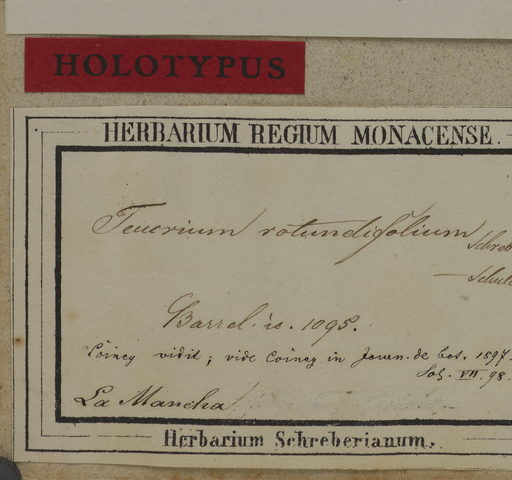 HOLOTYPUS
HERBARIUM REGIUM MONACENSE.
Teucrium rotundifolium Schreb
— Schult
Barrel. ic. 1095.
Coincy vidit; vide Coincy in Journ. de bot. 1897.
VII. 98.
La Mancha
Herbarium Schreberianum.